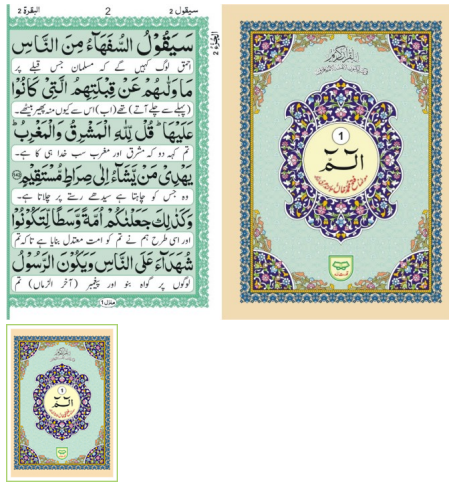 سيقول 2
2
البقرة 2
الجزء 2
سَيَقُوۡلُ السُّفَهَآءُ مِنَ النَّاسِ
احمق لوگ کہیں گے کہ مسلمان جس قبلے پر
مَا وَلّٰٮهُمۡ عَنۡ قِبۡلَتِهِمُ الَّتِىۡ كَانُوۡا
(پہلے سے چلے آتے) تھے (اب) اس سے کیوں منہ پھیر بیٹھے۔
عَلَيۡهَا ؕ قُلۡ لِّلّٰهِ الۡمَشۡرِقُ وَالۡمَغۡرِبُ ؕ
تم کہہ دو کہ مشرق اور مغرب سب خدا ہی کا ہے۔
يَهۡدِىۡ مَنۡ يَّشَآءُ اِلٰى صِرَاطٍ مُّسۡتَقِيۡمٍ
وہ جس کو چاہتا ہے سیدھے رستے پر چلاتا ہے۔
وَكَذٰلِكَ جَعَلۡنٰكُمۡ اُمَّةً وَّسَطًا لِّتَکُوۡنُوۡا
اور اسی طرح ہم نے تم کو امت معتدل بنایا ہے تاکہ تم
شُهَدَآءَ عَلَى النَّاسِ وَيَكُوۡنَ الرَّسُوۡلُ
لوگوں پر گواہ بنو اور پیغمبر (آخر الزماں) تم
منزل 1
1
الٓمّٓ
1
الٓمّٓ